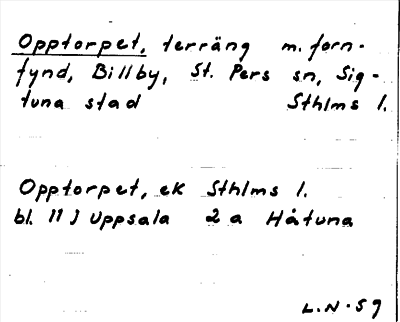 Opptorpet, terräng m. forn-
fynd, Billby, St. Pers sn, Sig-
tuna stad Sthlms l.
Opptorpet, ek Sthlms l.
bl. 11 J Uppsala 2 a Håtuna
L.N-59